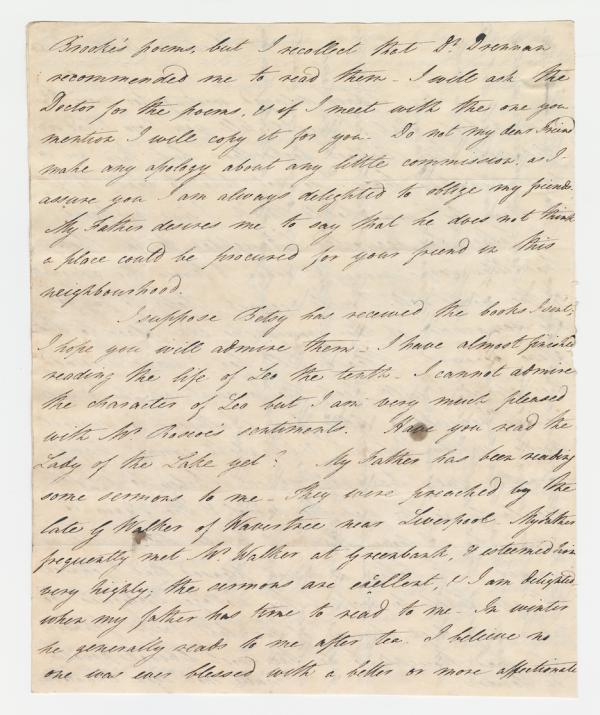 Brooke's poems, but I recollect that Dr. Drennan
recommended me to read them - I will ask the
Doctor for the poems, & if I meet with the one you
mention I will copy it for you - Do not my dear Friend
make any apology about any little commission, as I
assure you I am always delighted to oblige my friends.
My Father desires me to say that he does not think
a place could be procured for your friend in this
neighbourhood.
I suppose Betsy has received the books I sent,
I hope you will admire them - I have almost finished
reading the life of Leo the tenth - I cannot admire
the character of Leo but I am very much pleased
with Mr. Roscoe's sentiments. Have you read the
Lady of the Lake yet? My Father has been reading
some sermons to me - They were preached by the
late G Walker of Wavertree near Liverpool - My Father
frequently met Mr. Walker at Greenbank, & esteemed him
very highly; the sermons are excellent, & I am delighted
when my father has time to read to me - In winter
he generally reads to me after tea. I believe no
one was ever blessed with a better or more affectionate